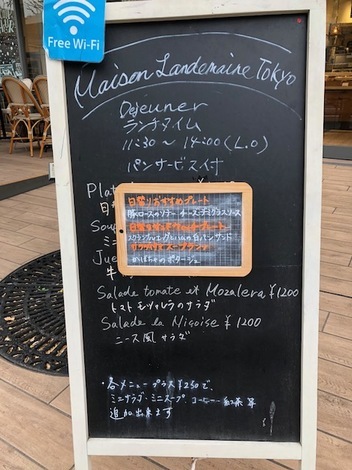 Free Wi-Fi
Maison Landemaine Tokyo
Dejeuner
ランチタイム
11:30 ~ 14:00 (L.O)
パンサービス付
Plat
日替りおすすめプレート
豚ロースのソテー チーズデミグラスソース
Sou
ミニ
かぼちゃのポタージュ
牛
Salade tomate et Mozalera ¥1200
トマトモッツァレラのサラダ
Salade la Niçoise ¥1200
ニース風サラダ
・各メニュープラス¥250で、
ミニサラダ・ミニスープ、コーヒー 紅茶 等
追加出来ます